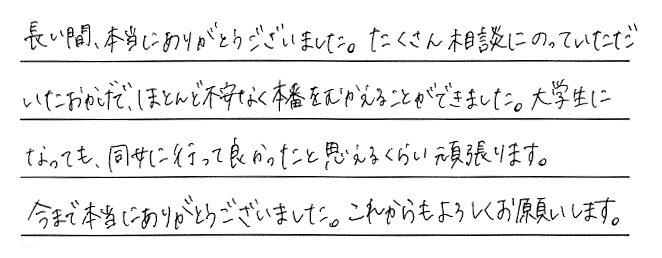 長い間、本当にありがとうございました。たくさん相談にのっていただ
いたおかげで、ほとんど不安なく本番をむかえることができました。大学生に
なっても、同女に行って良かったと思えるくらい頑張ります。
今まで本当にありがとうございました。これからもよろしくお願いします。